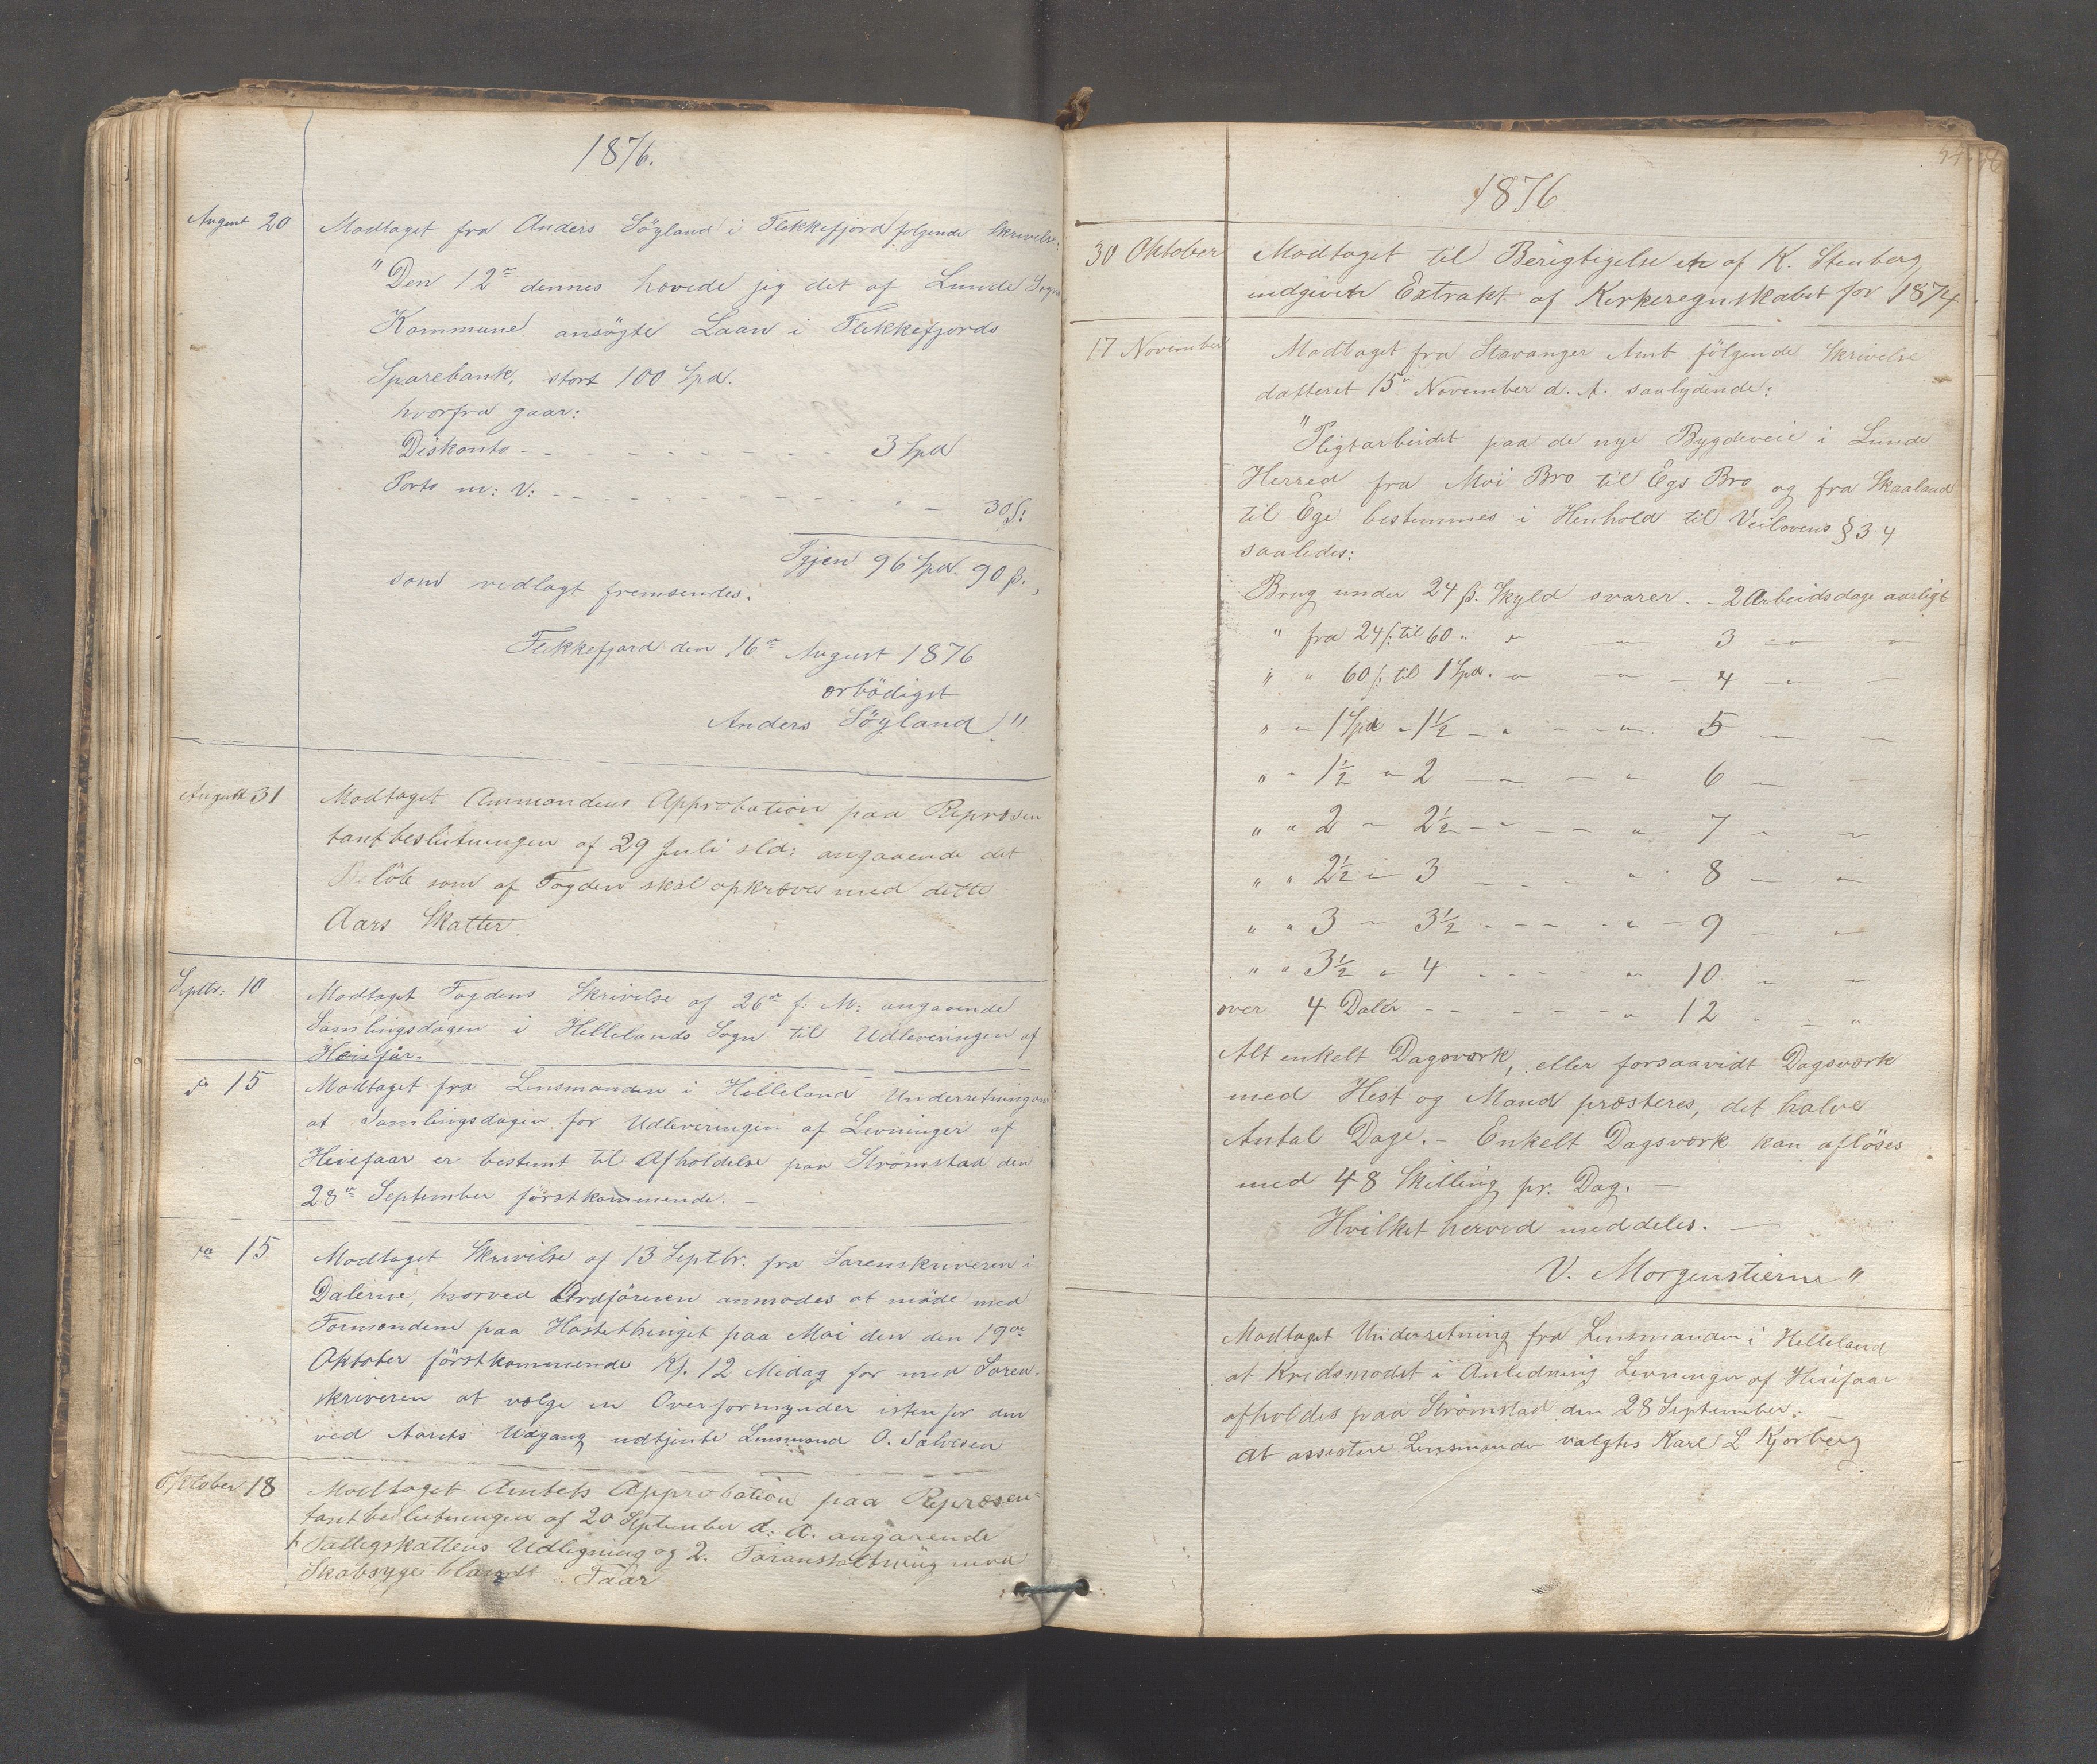 1876.
August 20 Modtaget fra Anders Söyland i Flekkefjord følgende Skrivelse:
"Den 12te dennes hævede jeg det af Lunde Sogns
Kommune ansøgte Laan i Flekkefjords
Sparebank, stort 100 Spd.
hvorfra gaar:
Diskonto - - - - - - - - - - 3 Spd
Porto m: V: - - - - - - - - - - - - 30 ß:
Igjen 96 Spd. 90 ß.,
som vedlagt fremsendes.
Flekkefjord den 16de August 1876
ærbödigst
Anders Söyland."
August 31 Modtaget Amtmandens Approbation paa Repræsen
tantbeslutningen af 29 Juli sld: angaaende det
Belöb som af Fogden skal opkræves med dette
Aars Skatter.
Septbr: 10 Modtaget Fogdens Skrivelse af 26de f: M: angaaende
Samlingsdagen i Hellelands Sogn til Udleveringen af
Heiefår.
do 15 Modtaget fra Lensmanden i Helleland Underretning om
at Samlingsdagen for Udleveringen af Levninger af
Heiefaar er bestemt til Afholdelse paa Strømstad den
28de September förstkommende. -
do 15 Modtaget Skrivelse af 13 Septbr. fra Sorenskriveren i
Dalerne, hvorved Ordföreren anmodes at möde med
Formændene paa Høstethinget paa Moi den den 19de
Oktober förstkommende Kl. 12 Midag for med Soren-
skriveren at vælge en Overformynder istenfor den
ved Aarets Udgang udtjente Lensmand O. Salvesen
Oktober 18 Modtaget Amtets Approbation paa Repræsen-
tantbeslutningen af 20 September d: A. angaaende
1 Fattigskattens Udligning og 2. Foranstaltning mod
Skabsyge blandt Faar
1876
30 Oktober Modtaget til Berigtigelse en af K. Stenberg
indgiven Extrakt af Kirkeregnskabet for 1874
17 November Modtaget fra Stavanger Amt fölgende Skrivelse
dafteret 15de November d. A. saalydende:
"Pligtarbeidet paa de nye Bygdeveie i Lunde
Herred fra Moi Bro til Egs Bro og fra Skaaland
til Ege bestemmes i Henhold til Veilovens § 34
saaledes:
Brug under 24 ß. Skyld svarer - - 2 Arbeidsdage aarligt
" fra 24 ß: til 60 " " - " - 3 - " - "
" " 60 ß: til 1 Spd. - " - " - 4 - " -
" - " 1 Spd " 1½ - " - - " 5 - -
" - 1½ " 2 - - - " 6 - -
" " 2 - 2½ - - - - " 7 - -
" " 2½ - 3 - - - " 8 - "
" " 3 - 3½ - - - - " - 9 - "
" " 3½ " 4 - - - - " 10 " -
over 4 Daler - - - - - - " 12 " - "
Alt enkelt Dagsværk, eller forsaavidt Dagsværk
med Hest og Mand præsteres, det halve
Antal Dage. - Enkelt Dagsværk kan aflöses
med 48 Skilling pr. Dag. -
Hvilket herved meddeles. -
V. Morgenstierne "
Modtaget Underretning fra Lensmanden i Helleland
at Kredsmødet i Anledning Levninger af Heiefaar
afholdes paa Strömstad den 28 September. -
At assistere Lensmanden valgtes Karl L Kjørberg